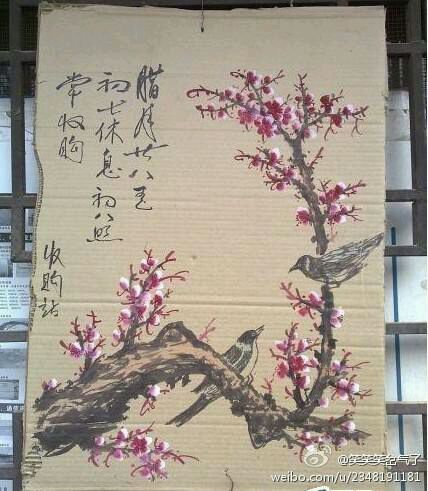 腊月廿八至
初七休息初八照
常收购
收购站
@笑笑笑岔气了
weibo.com/u/2348191181